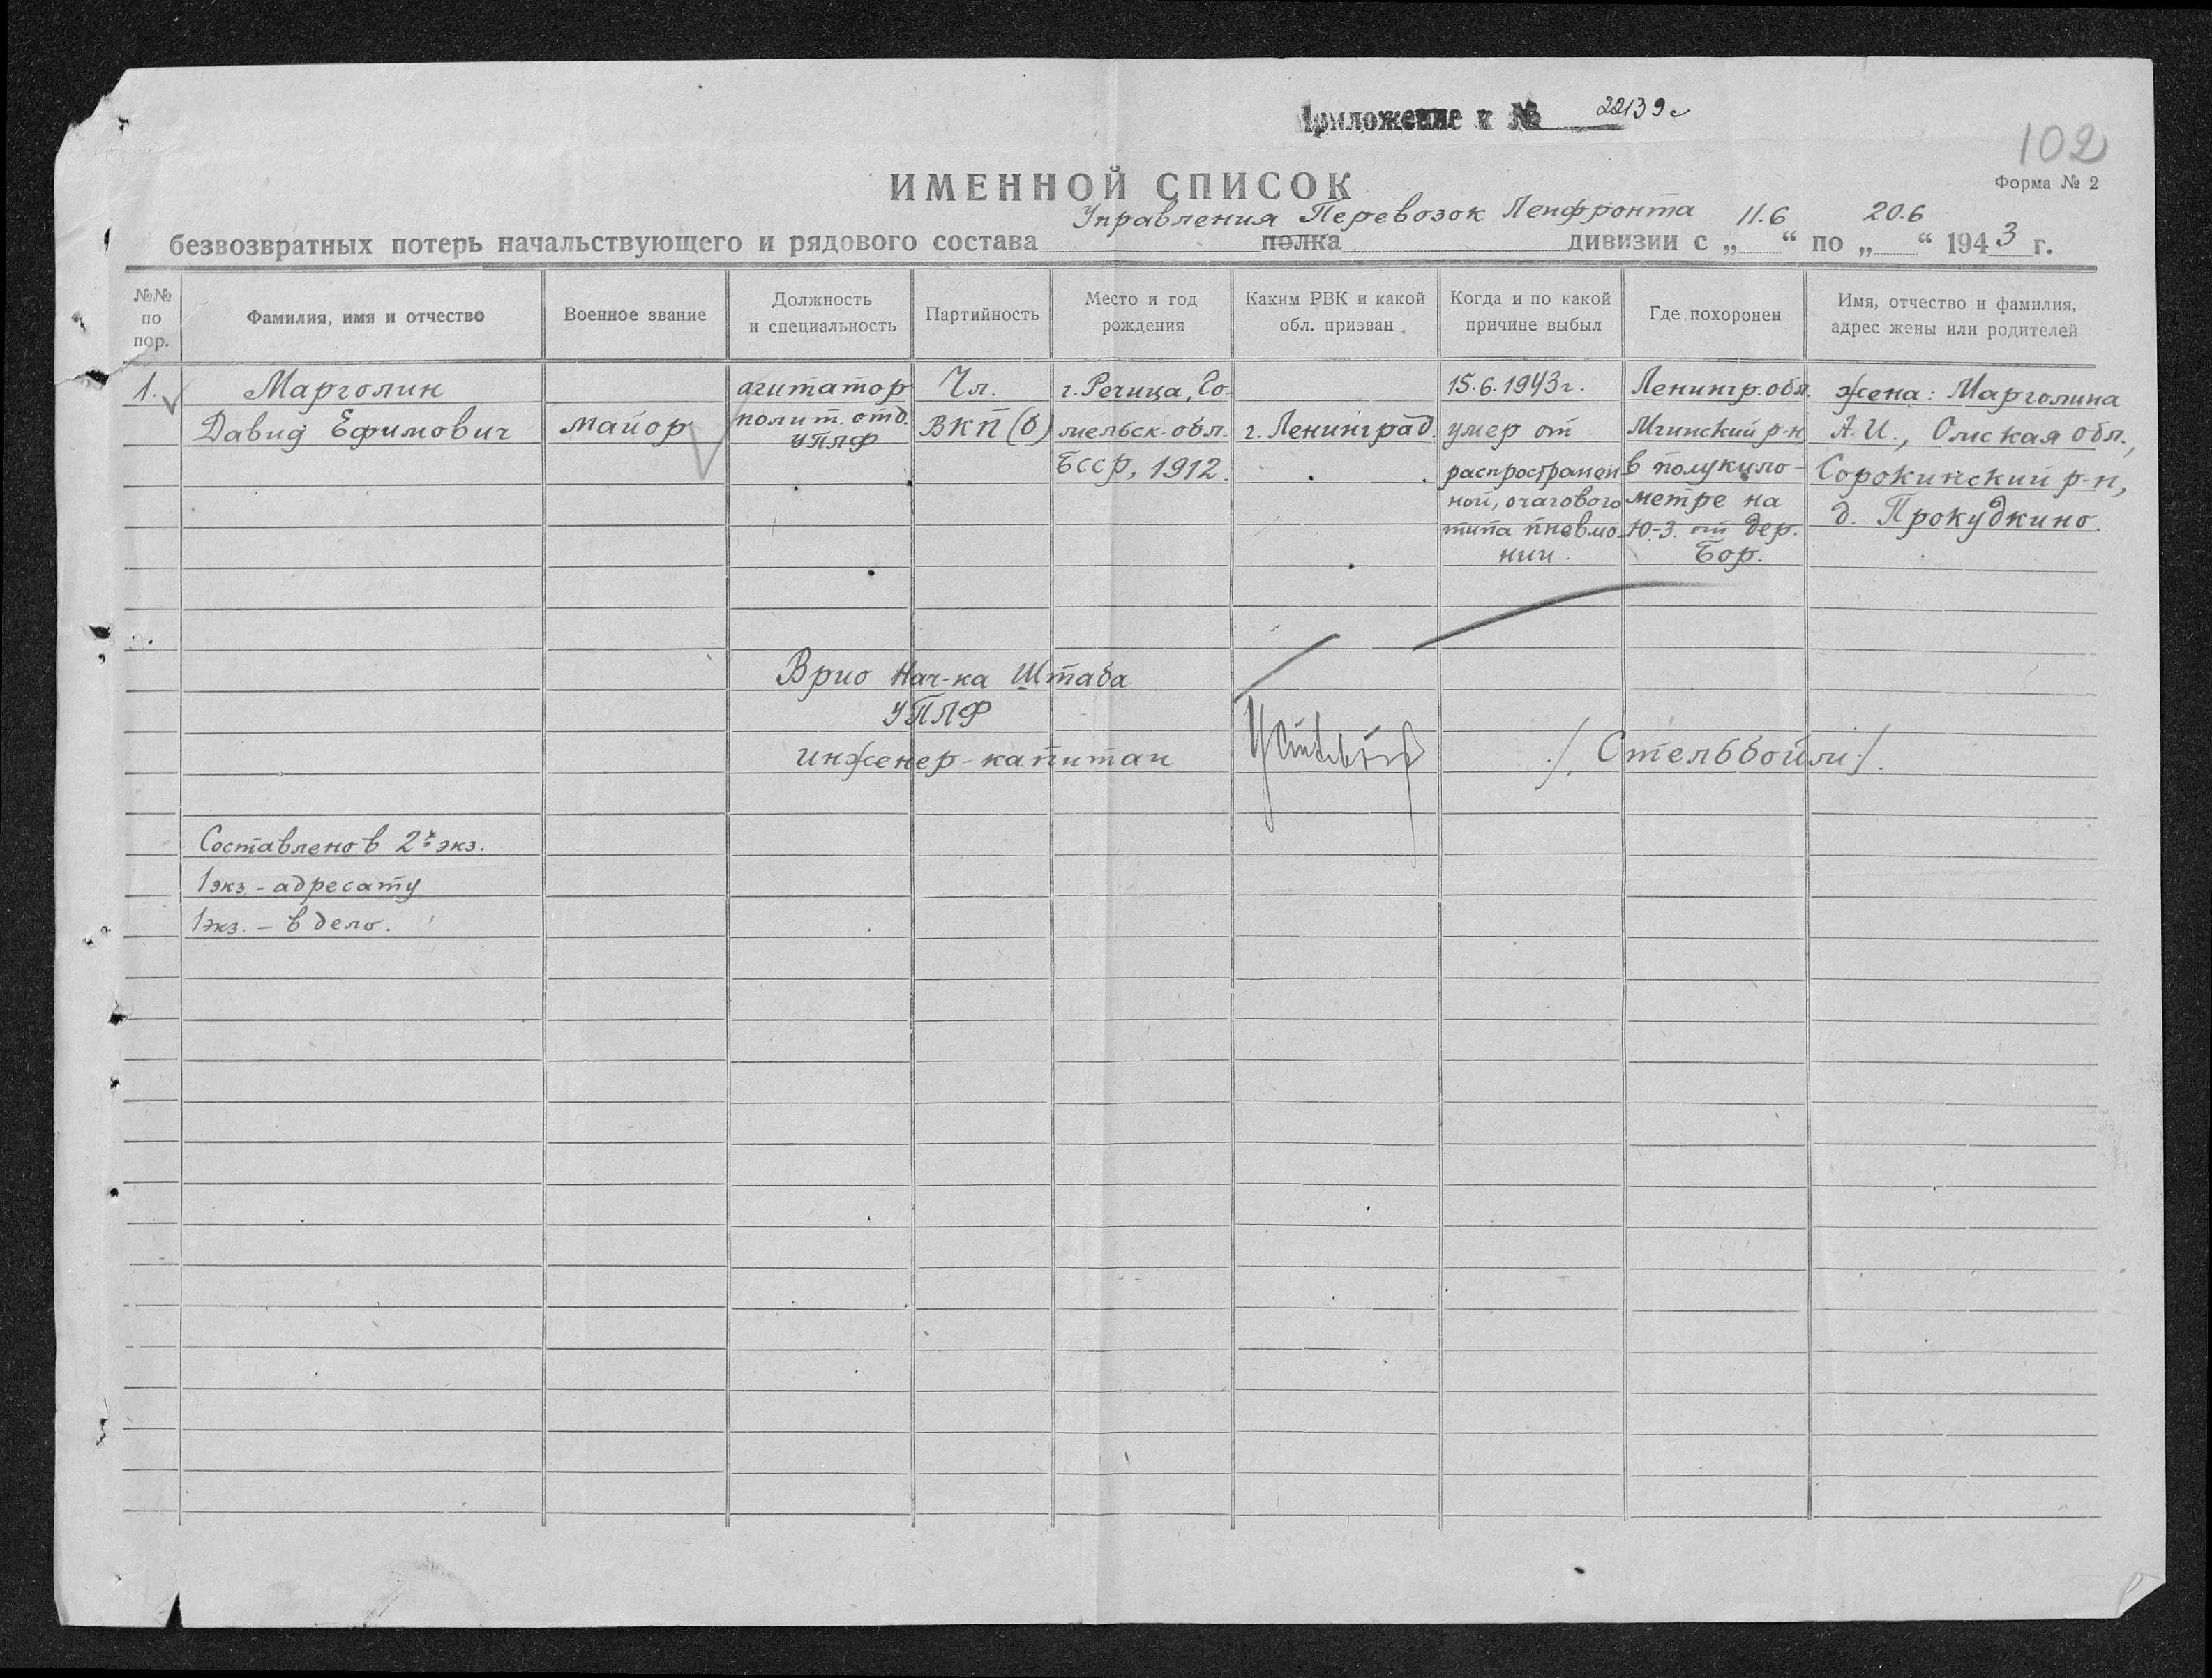 Приложение к № 22139с
102
ИМЕННОЙ СПИСОК
Форма № 2
Управления Перевозок Ленфронта 11.6 20.6
безвозвратных потерь начальствующего и рядового состава полка дивизии с „ “ по „ “ 1943 г.
№№ по пор.
Фамилия, имя и отчество
Военное звание
Должность и специальность
Партийность
Место и год рождения
Каким РВК и какой обл. призван
Когда и по какой причине выбыл
Где похоронен
Имя, отчество и фамилия, адрес жены или родителей
1. Марголин агитатор Чл. г. Речица, Го- 15.6.1943г. Ленингр. обл. жена: Марголина
Давид Ефимович майор полит. отд. ВКП(б) мельск. обл. г. Ленинград. умер от Мгинский р-н А.И., Омская обл.,
УПЛФ БССР, 1912. распространен в полукило- Сорокинский р-н,
ной, очагового метре на д. Прокудкино.
типа пневмо- Ю-З. от дер.
нии. Бор.
Врио Нач-ка Штаба
УПЛФ
инженер-капитан /. Стельбойм ./.
Составлено в 2х экз.
1 экз. - адресату
1 экз. - в дело.